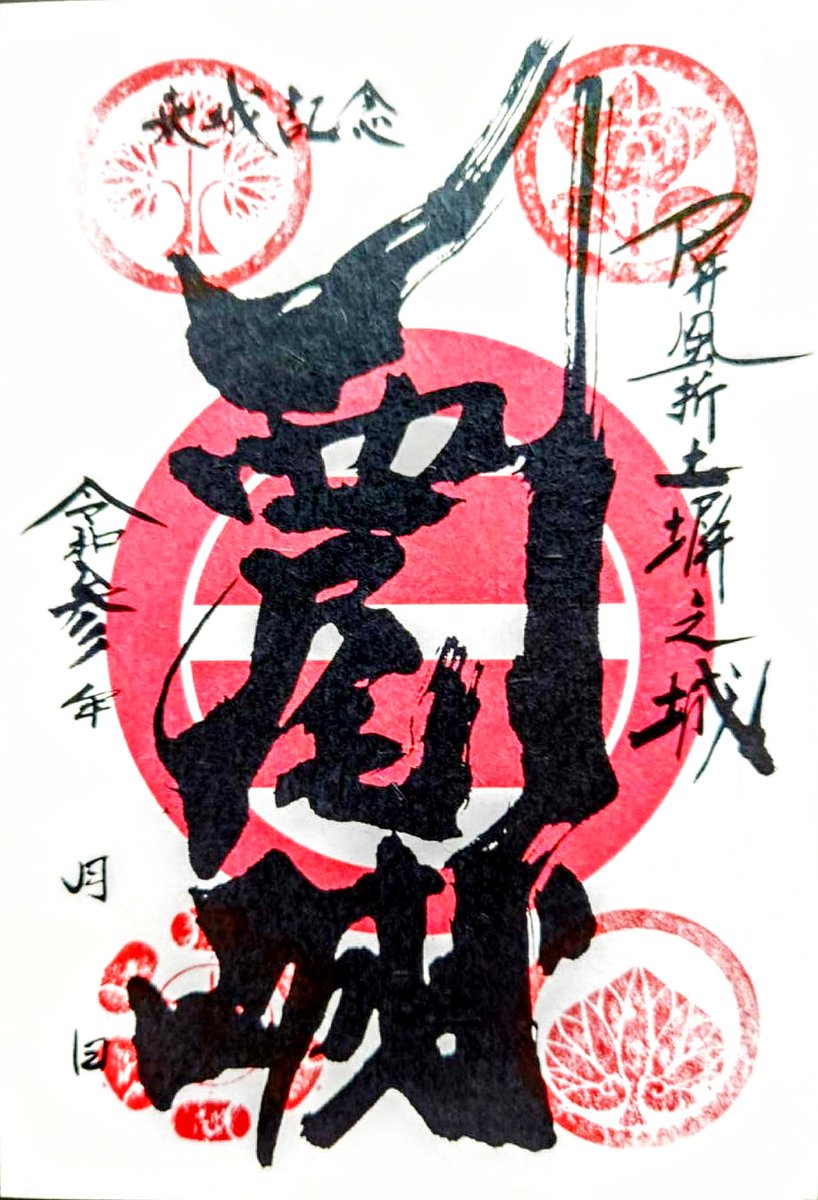 登城記念
屏風折土塀之城
西尾城
令和参年
月
日